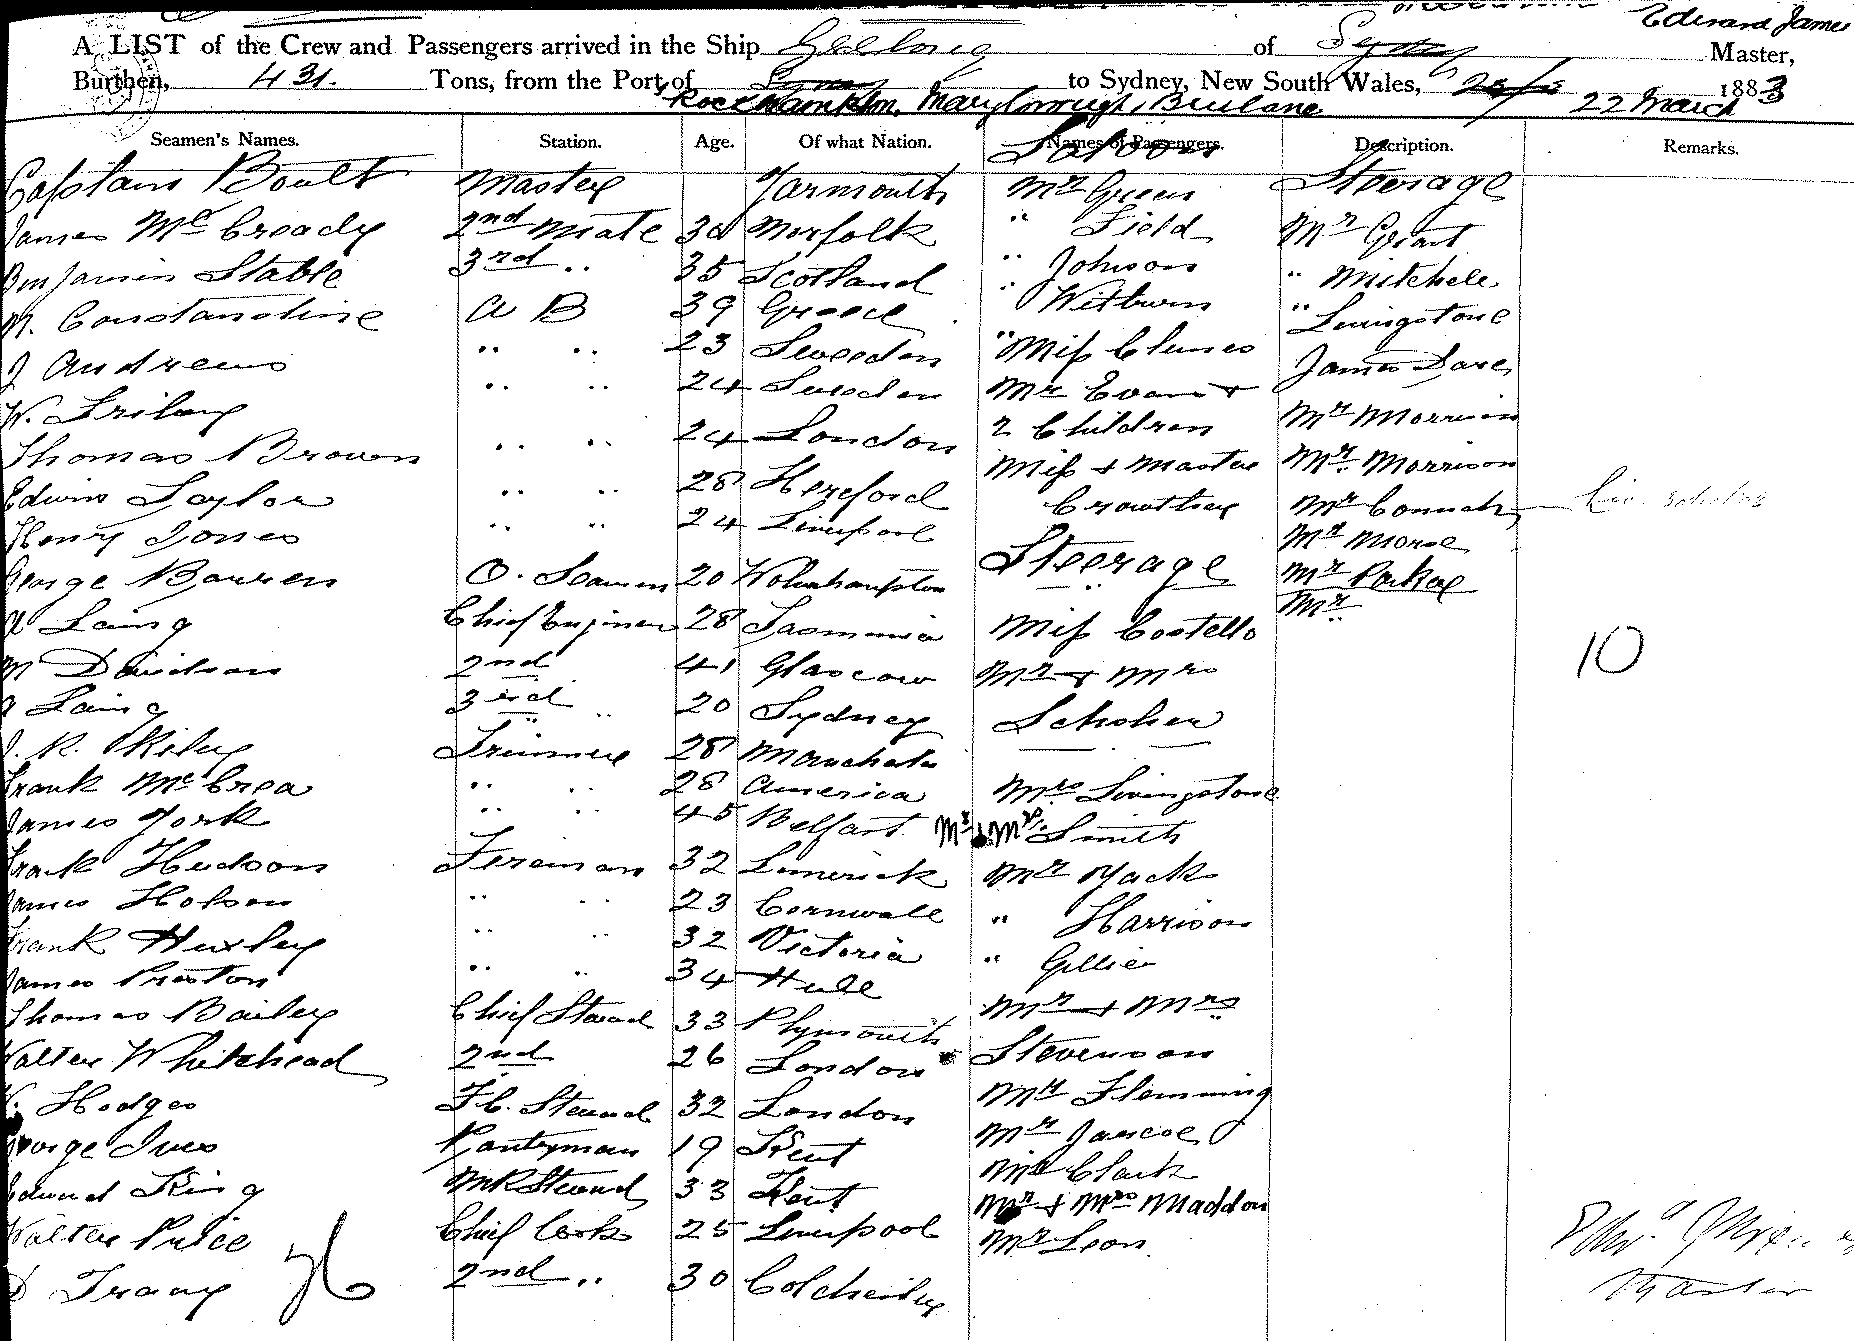 Edward James
A LIST of the Crew and Passengers arrived in the Ship Geelong of Sydney Master,
Burthen, 431. Tons, from the Port of to Sydney, New South Wales, 22 March 1883
Rockhampton, Maryborough, Brisbane
Seamen's Names. Station. Age. Of what Nation. Names of Passengers. Description. Remarks.
Saloon
Captain Boult Master Yarmouth Mr Green Steerage
James McCready 2nd Mate 30 Norfolk " Field Mr Grant
Benjamin Stable 3rd " 35 Scotland " Johnson " Mitchell
Constantine A B 39 Greece " Witburn " Livingstone
J Andrews " " 23 Sweden " Miss Clunes James Dare
W. " " 24 Sweden Mr Evans + Mr Morrison
Thomas Brown " " 24 London 2 Children Mr. Morrison
Edwin Taylor " " 28 Hereford Miss + Master Mr
Henry Jones " " 24 Liverpool Crowther Mr Morse
George Barren O. Seamen 20 Wolverhampton Steerage Mr Parker
Laing Chief Engineer 28 Tasmania Miss Costello Mr
M Davidson 2nd 41 Glascow Mr + Mrs 10
Laing 3rd " 20 Sydney Scholer
J. R. Kiley Trimmer 28 Manchester
Frank McCrea " " 28 America Mrs Livingstone
James York " " 45 Belfast Mr & Mrs Smith
Frank Hudson Fireman 32 Limerick Mr Yack
James Hobson " " 23 Cornwall " Harrison
Frank Huxley " " 32 Victoria " Gillie
James Preston " " 34 Hull Mr + Mrs
Thomas Bailey Chief Steward 33 Plymouth Stevenson
Walter Whitehead 2nd 26 London Mr Flemming
Hodges F.C. Steward 32 London Mr Jascoe
George Ives Pantryman 19 Kent Mr Clark
Edward King MR Steward 33 Kent Mr + Mrs Maddon
Walter Price Chief Cook 25 Liverpool Mr Leon
Tracy 36 2nd " 30 Colchester
Master